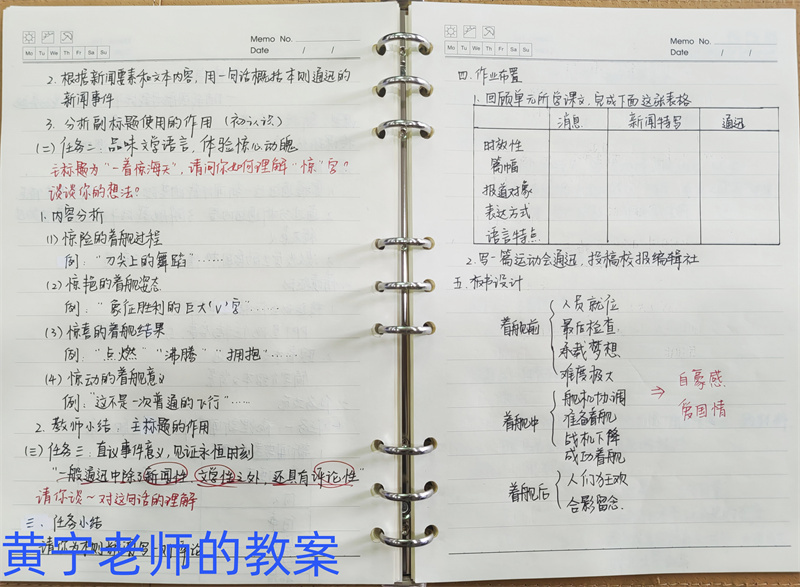 Memo No.
Mo Tu We Th Fr Sa Su
Date / /
2. 根据新闻要素和文本内容，用一句话概括本则通讯的
新闻事件
3. 分析副标题使用的作用（初认识）
(二) 任务二：品味文学语言，体验惊心动魄
主标题为“一着惊海天”，请问你如何理解“惊”字？
谈谈你的想法？
1. 内容分析
(1) 惊险的着舰过程
例：“刀尖上的舞蹈”……
(2) 惊艳的着舰姿态
例：“象征胜利的巨大‘V’字”……
(3) 惊喜的着舰结果
例：“点燃”“沸腾”“拥抱”……
(4) 惊动的着舰意义
例：“这不是一次普通的飞行”……
2. 教师小结：主标题的作用
(三) 任务三：直议事件意义，见证永恒时刻
“一般通讯中除了新闻性、文学性之外，还具有评论性”
请你谈~对这句话的理解
三、任务小结
黄宁老师的教案
Memo No.
Mo Tu We Th Fr Sa Su
Date / /
四. 作业布置
1. 回顾单元所学课文，完成下面这张表格
消息 新闻特写 通讯
时效性
篇幅
报道对象
表达方式
语言特点
2. 写一篇运动会通讯，投稿校报编辑社
五. 板书设计
着舰前
人员就位
最后检查
承载梦想
难度极大
着舰中
舰机协调
准备着舰
战机下降
成功着舰
⇒ 自豪感
爱国情
着舰后
人们狂欢
合影留念.